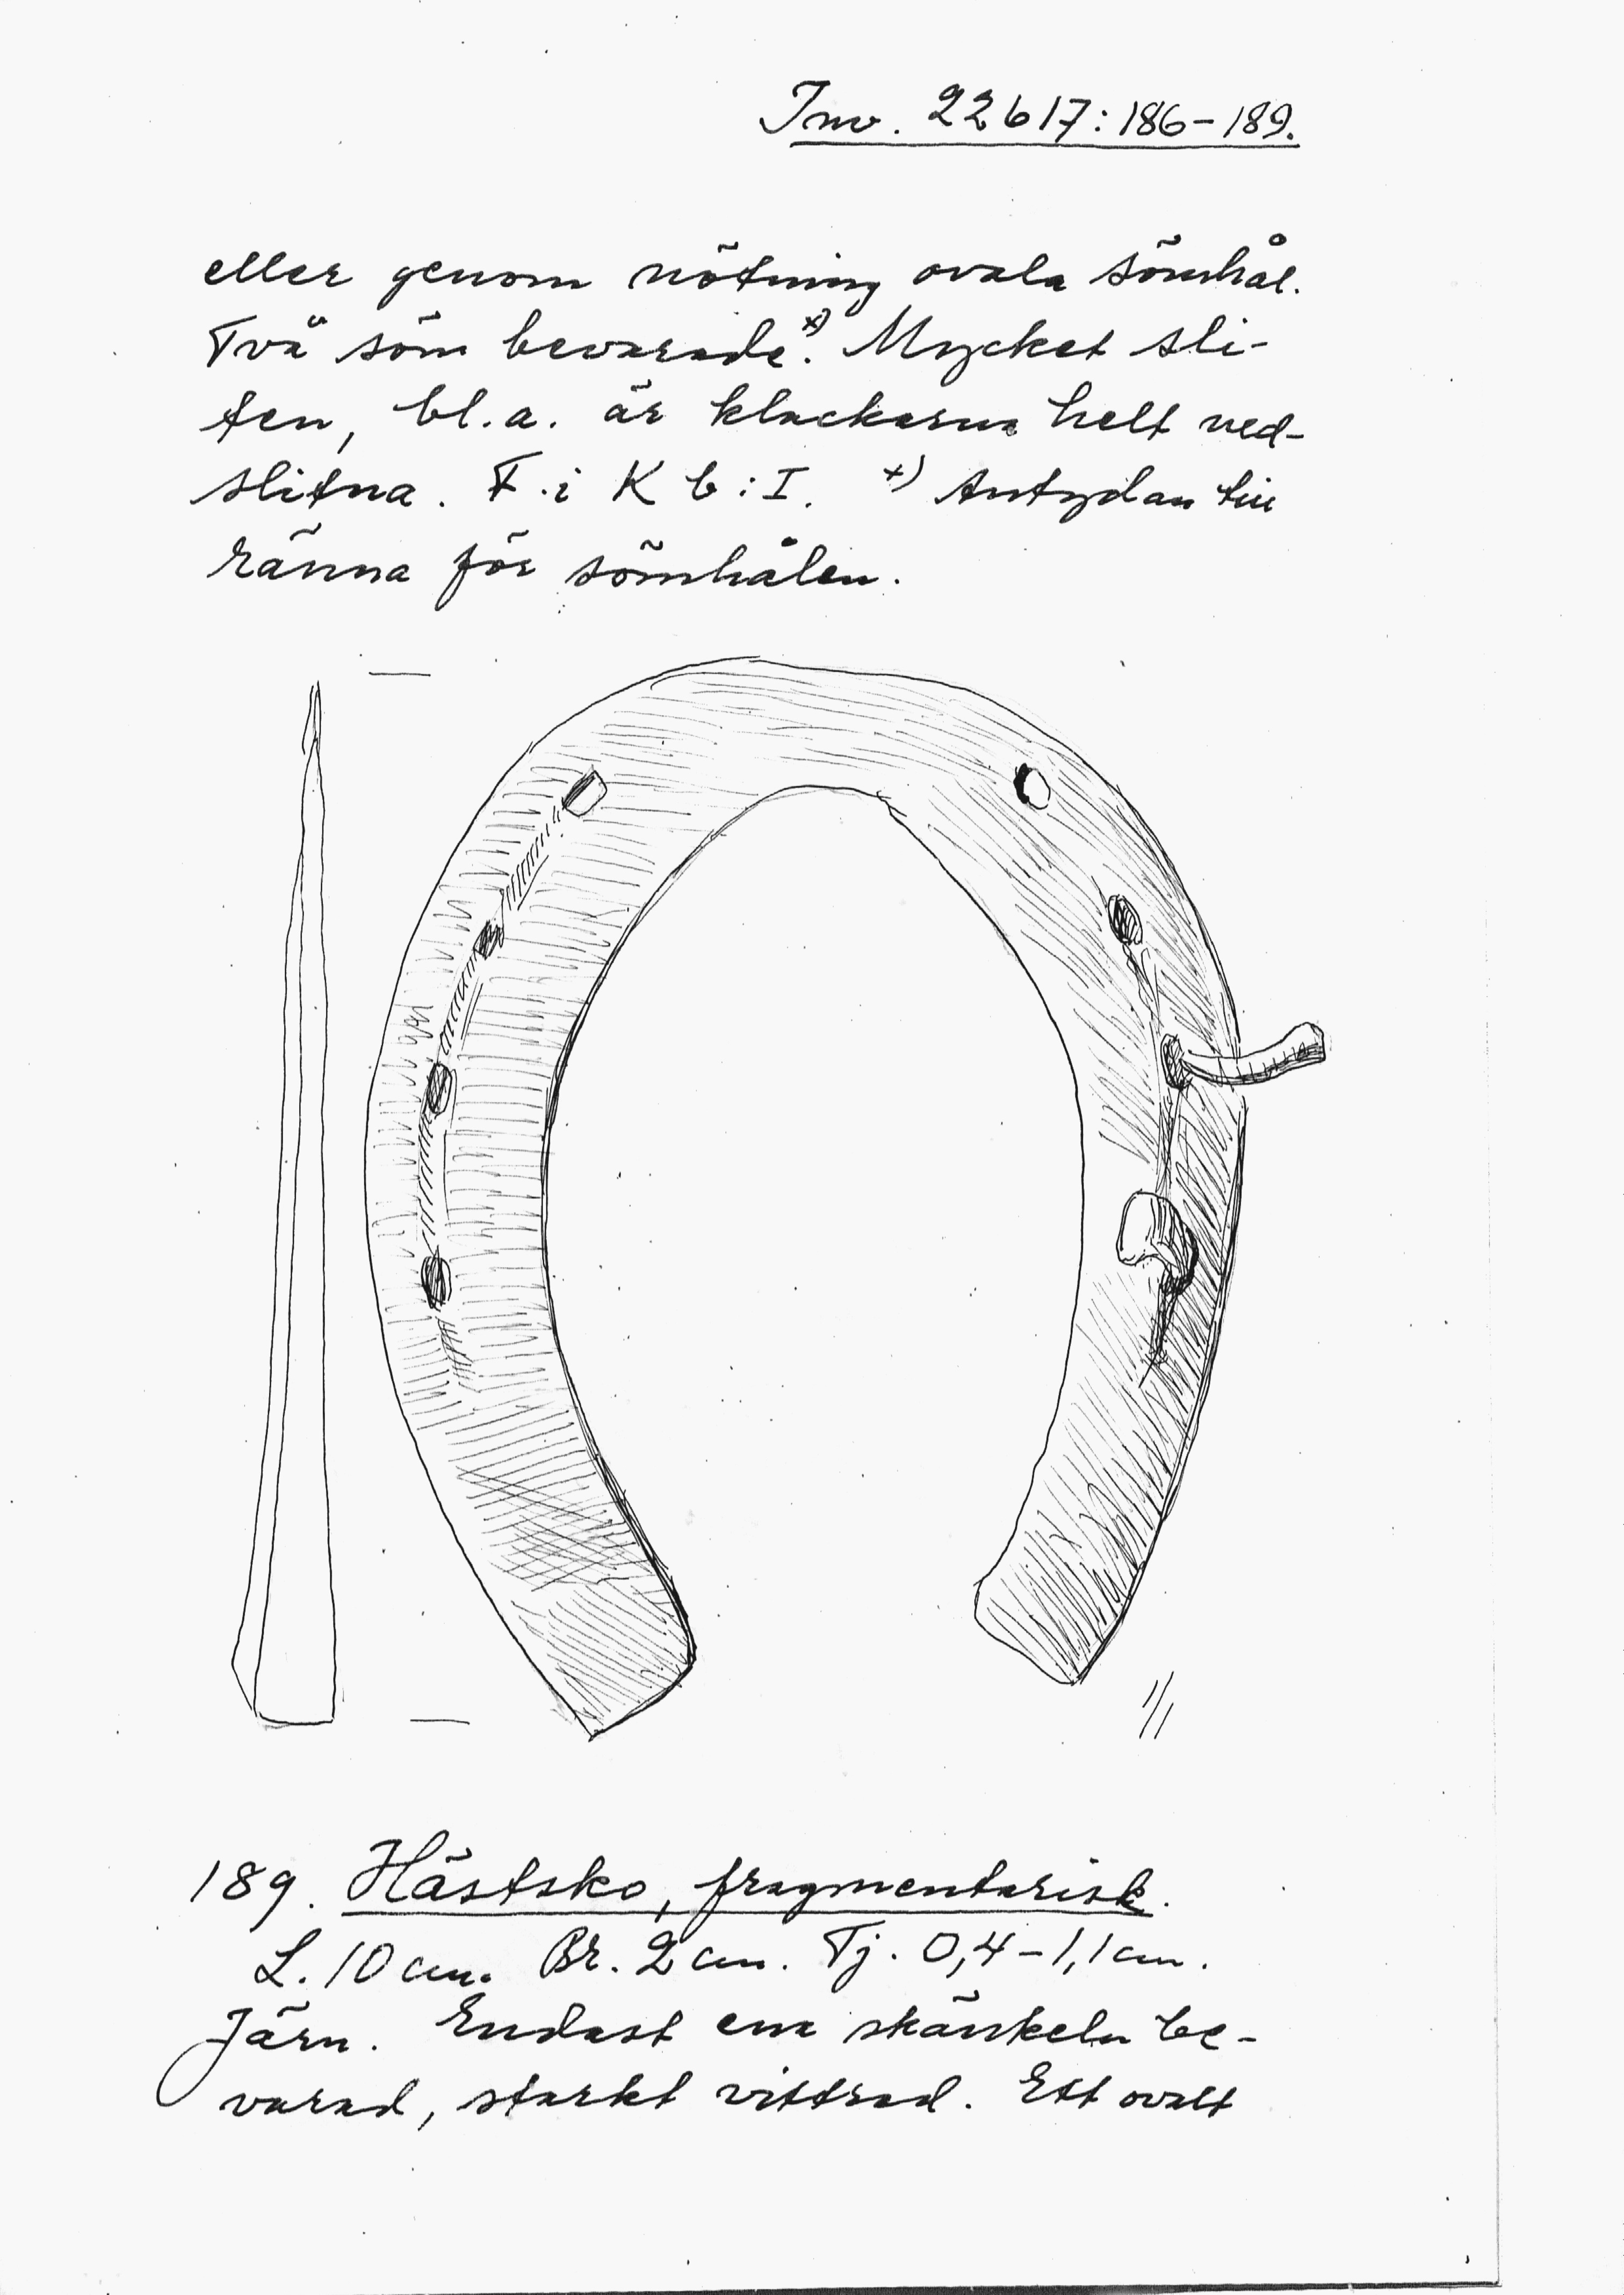 Inv. 22617:186-189.
eller genom nötning ovala sömhål.
Två söm bevarade.x) Mycket sli-
ten, bl.a. är klackarna helt ned-
slitna. F. i K b:I. x) Antydan till
ränna för sömhålen.
1/1
189. Hästsko, fragmentarisk.
L. 10 cm. Br. 2 cm. Tj. 0,4-1,1 cm.
Järn. Endast ena skänkeln be-
varad, starkt vittrad. Ett ovalt